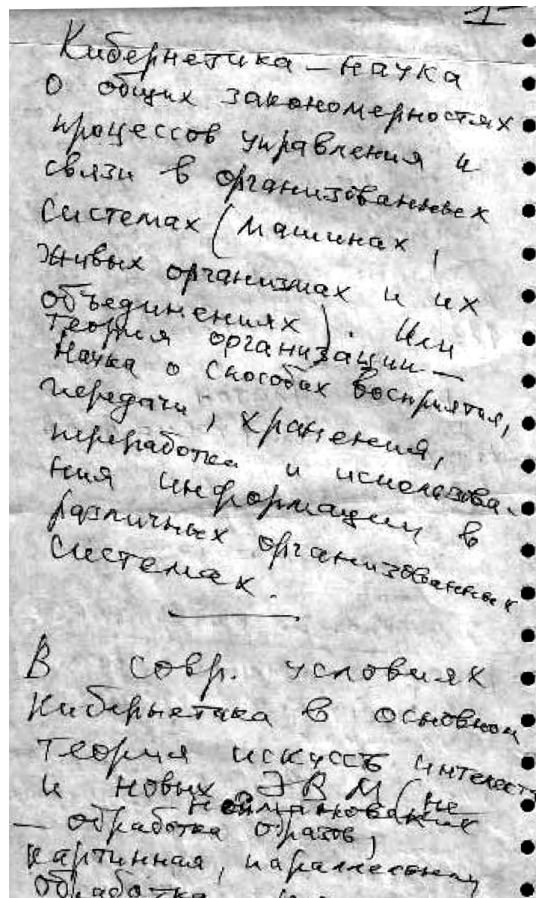 1
Кибернетика – наука
о общих закономерностях
процессов управления и
связи в организованных
системах (машинах,
живых организмах и их
объединениях). Или
теория организации –
наука о способах восприятия,
передачи, хранения,
переработки и использова-
ния информации в
различных организованных
системах.
В совр. условиях
Кибернетика в основном
теория искусств интелект
и новых ЭВМ (не
неймановских
– обработка образов,
картинная, параллельная
обработка